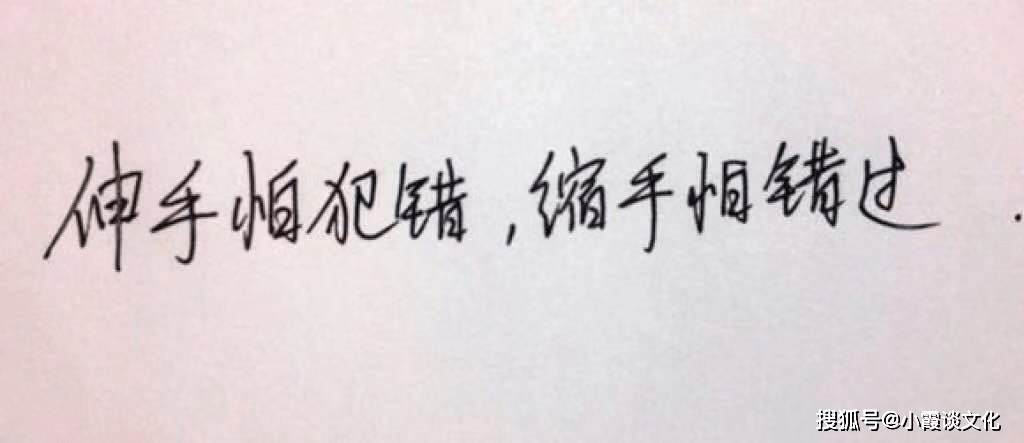 伸手怕犯错,缩手怕错过.
搜狐号@小霞谈文化